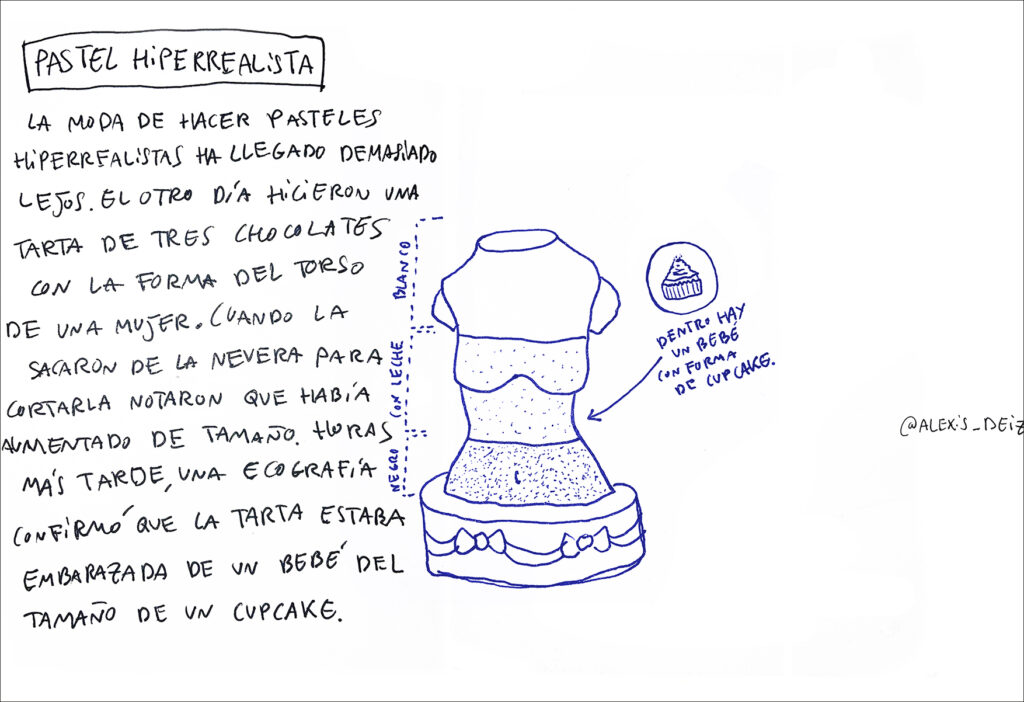 PASTEL HIPERREALISTA
LA MODA DE HACER PASTELES
HIPERREALISTAS HA LLEGADO DEMASIADO
LEJOS. EL OTRO DÍA HICIERON UNA
TARTA DE TRES CHOCOLATES
CON LA FORMA DEL TORSO
DE UNA MUJER. CUANDO LA
SACARON DE LA NEVERA PARA
CORTARLA NOTARON QUE HABÍA
AUMENTADO DE TAMAÑO. HORAS
MÁS TARDE, UNA ECOGRAFÍA
CONFIRMÓ QUE LA TARTA ESTABA
EMBARAZADA DE UN BEBÉ DEL
TAMAÑO DE UN CUPCAKE.
BLANCO
CON LECHE
NEGRO
DENTRO HAY
UN BEBÉ
CON FORMA
DE CUPCAKE.
@ALEXIS_DEIZ